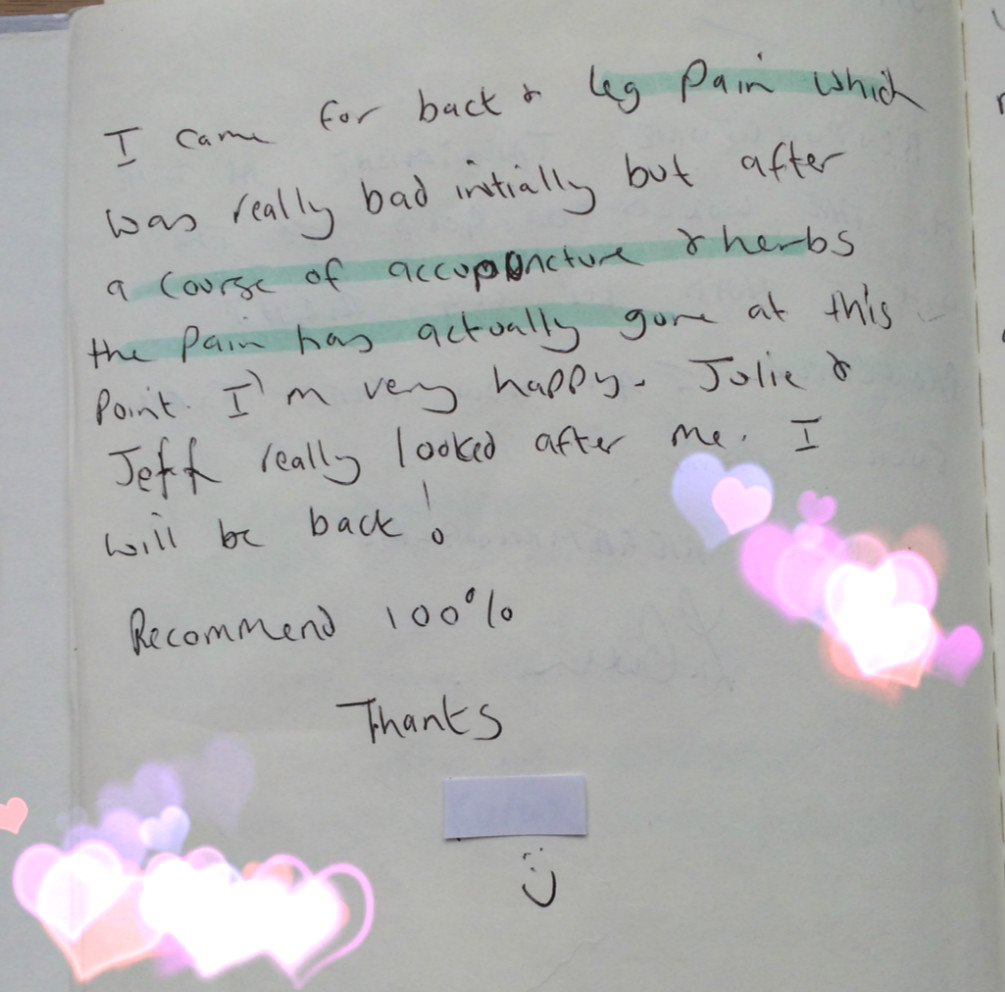 I came for back & leg pain which
was really bad initially but after
a course of accupuncture & herbs
the pain has actually gone at this
point. I'm very happy. Julie &
Jeff really looked after me. I
will be back!
Recommend 100%
Thanks